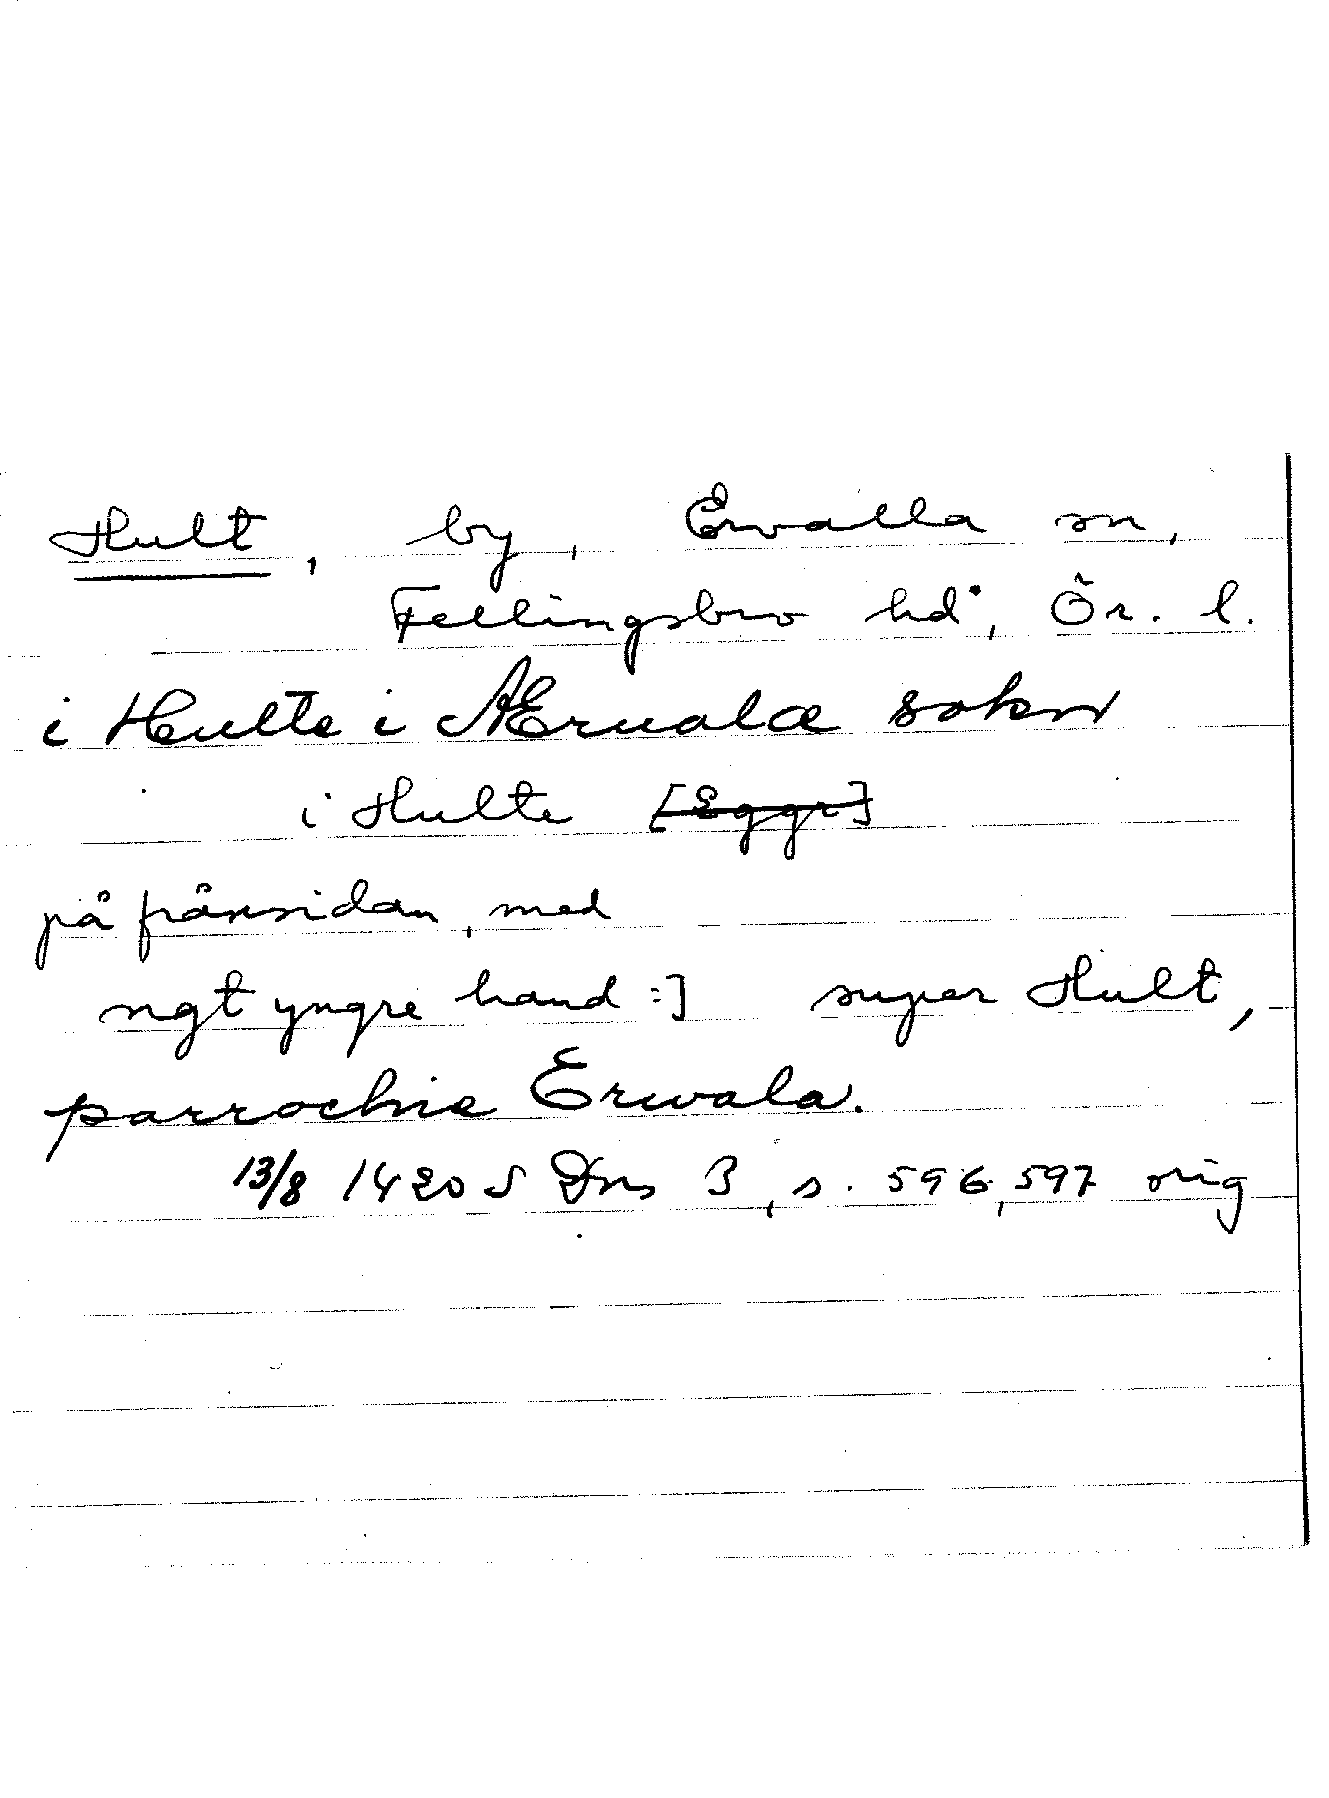 Hult, by, Ervalla sn,
Fellingsbro hd, Ör. l.
i Hulte i Æruala sokn
i Hulte [Eggr]
på frånsidan, med
ngt yngre hand:] super Hult,
parrochie Erwala.
13/8 1420 S Dns 3, s. 596, 597 orig